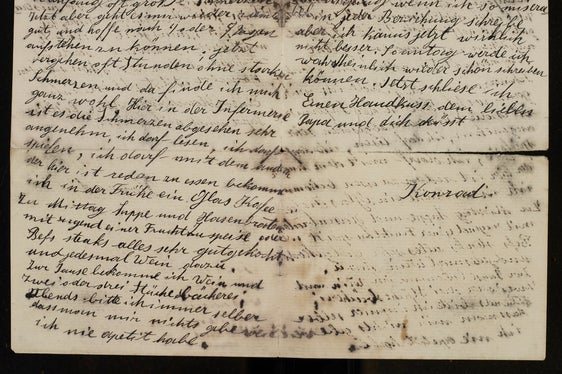 Jetzt aber geht es mir wieder
gut, und hoffe noch 4 oder 5 Tagen
aufstehen zu können, jetzt
vergehen oft Stunden ohne starke
Schmerzen und da finde ich mich
ganz wohl. Hier in der Infermerie
ist es die Schmerzen abgesehen sehr
angenehm, ich darf lesen, ich darf
spielen, ich darf mit dem
der hier ist reden zu essen bekomme
ich in der Frühe ein Glas Kaffe
zu Mittag Suppe und Hasenbraten
mit irgend einer Fruchtzuspeise oder
Befs steaks alles sehr gut gekocht
und jedesmal Wein dazu;
Zur Jause bekomme ich Wein und
zwei oder drei Stücke bäckerei,
Abends bitte ich immer selber
dass man mir nichts gibt
ich nie apetit habe.
wenn ich so misera
in jeder Beziehung schreibe
aber ich kann's jetzt wirklich
nicht besser. Sonntag werde ich
wahrscheinlich wieder schön schreiben
können. Jetzt schliese ich
Einen Handkuss dem lieben
Papa und dich küsst
Konrad.